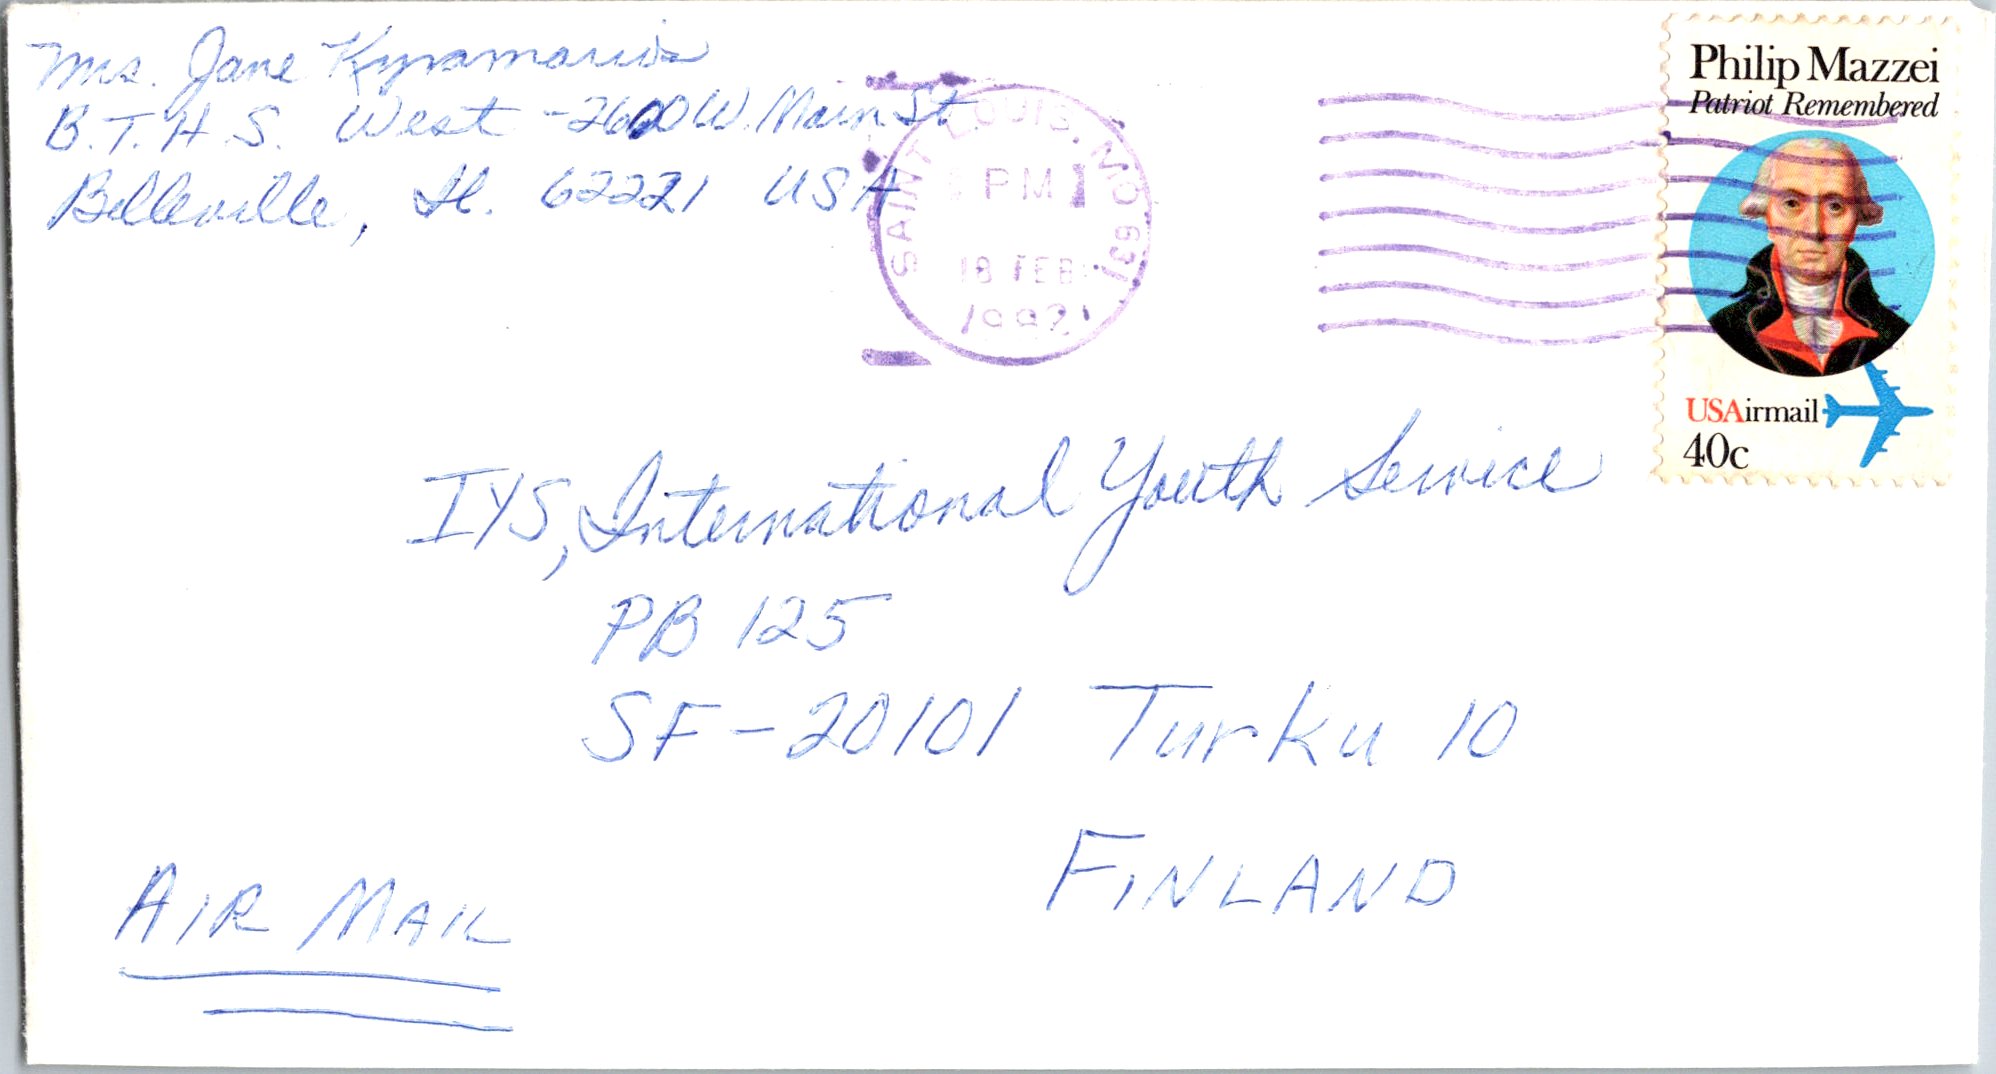 Mrs. Jane Kyramarios
B.T.H.S. West - 2600 W. Main St
Belleville, Il. 62221 USA
SAINT LOUIS, MO 631
PM
18 FEB
1992
Philip Mazzei
Patriot Remembered
USAirmail
40c
IYS, International Youth Service
PB 125
SF-20101 Turku 10
FINLAND
AIR MAIL